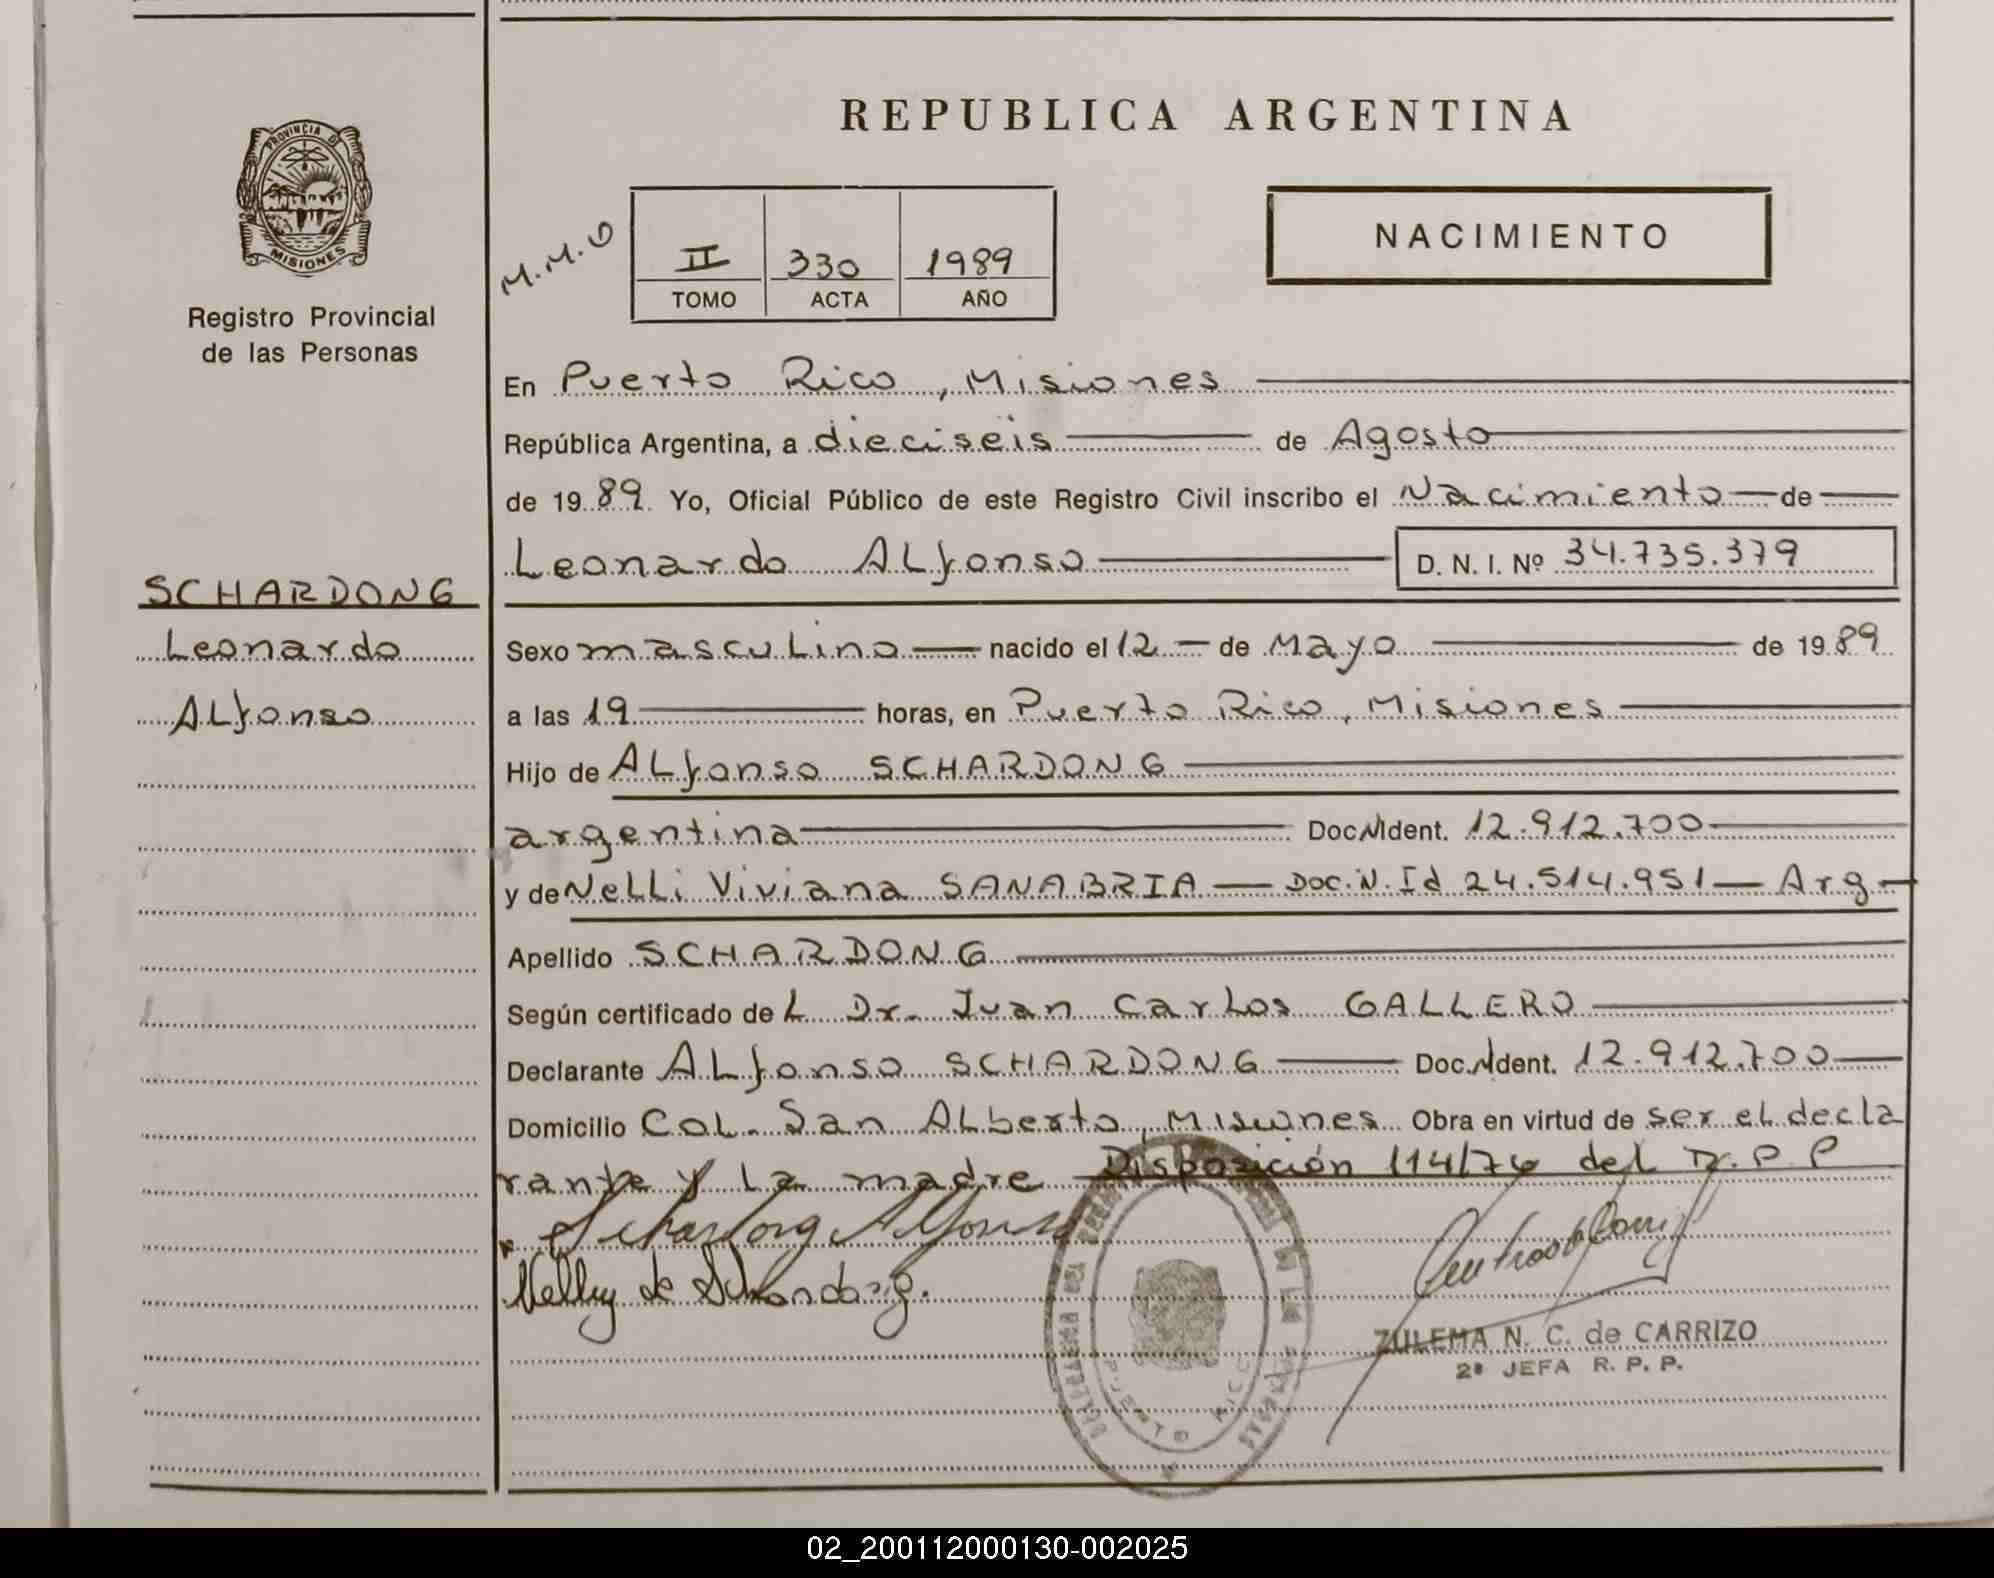 REPUBLICA ARGENTINA
PROVINCIA DE
MISIONES
Registro Provincial
de las Personas
M.M.G
II 330 1989
TOMO ACTA AÑO
NACIMIENTO
En Puerto Rico, Misiones
República Argentina, a dieciseis de Agosto
de 1989 Yo, Oficial Público de este Registro Civil inscribo el Nacimiento de
Leonardo Alfonso D. N. I. Nº 34.735.379
SCHARDONG
Leonardo
Alfonso
Sexo masculino nacido el 12 de Mayo de 1989
a las 19 horas, en Puerto Rico, Misiones
Hijo de Alfonso SCHARDONG
argentina Doc.N.Ident. 12.912.700
y de Nelli Viviana SANABRIA — Doc.N.Id 24.514.951 — Arg —
Apellido SCHARDONG
Según certificado del Dr. Juan Carlos GALLERO
Declarante Alfonso SCHARDONG Doc.N.Ident. 12.912.700
Domicilio Col. San Alberto, Misiones Obra en virtud de ser el decla
rante y la madre Disposición 114/76 del R.P.P
Schardong Alfonso
Nelly de Schardong.
PUERTO RICO
ZULEMA N. C. de CARRIZO
2ª JEFA R. P. P.
02_200112000130-002025